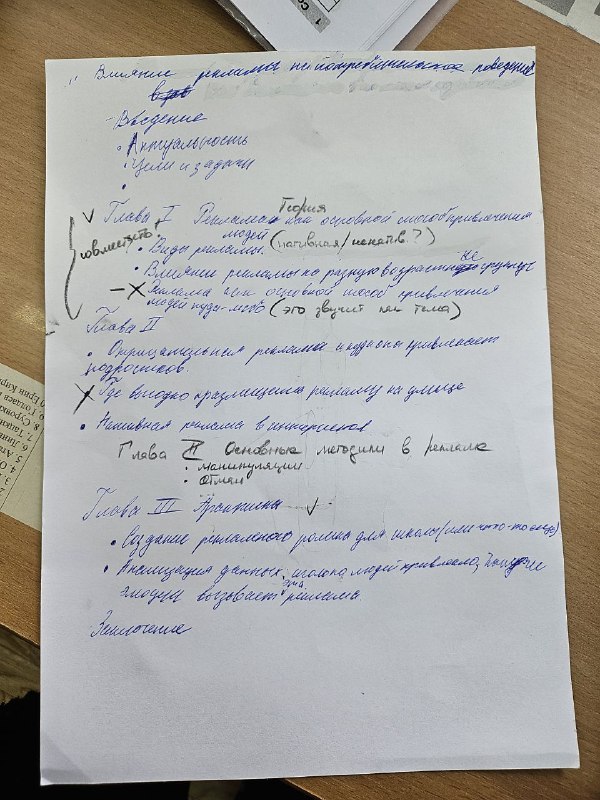 "Влияние рекламы на потребительское поведение
Введение
• Актуальность
• Цели и задачи
•
Теория
Глава I Реклама как основной способ привлечения
людей
совместить
• Виды рекламы. (нативная/негатив?)
• Влияние рекламы на разную возрастную группу
Реклама как основной способ привлечения
людей куда-либо (это звучит как тема)
Глава II
• Отрицательная реклама и привлекает
подростков.
Где выгодно размещать рекламу на улице
• Нативная реклама в интернете
Глава II Основные методики в рекламе
• манипуляции
• Обман
Глава III Практика
• Создание рекламного ролика для школы (или что-то еще)
• данных, сколько людей привлекло, какие
эмоции вызывает эта реклама.
Заключение